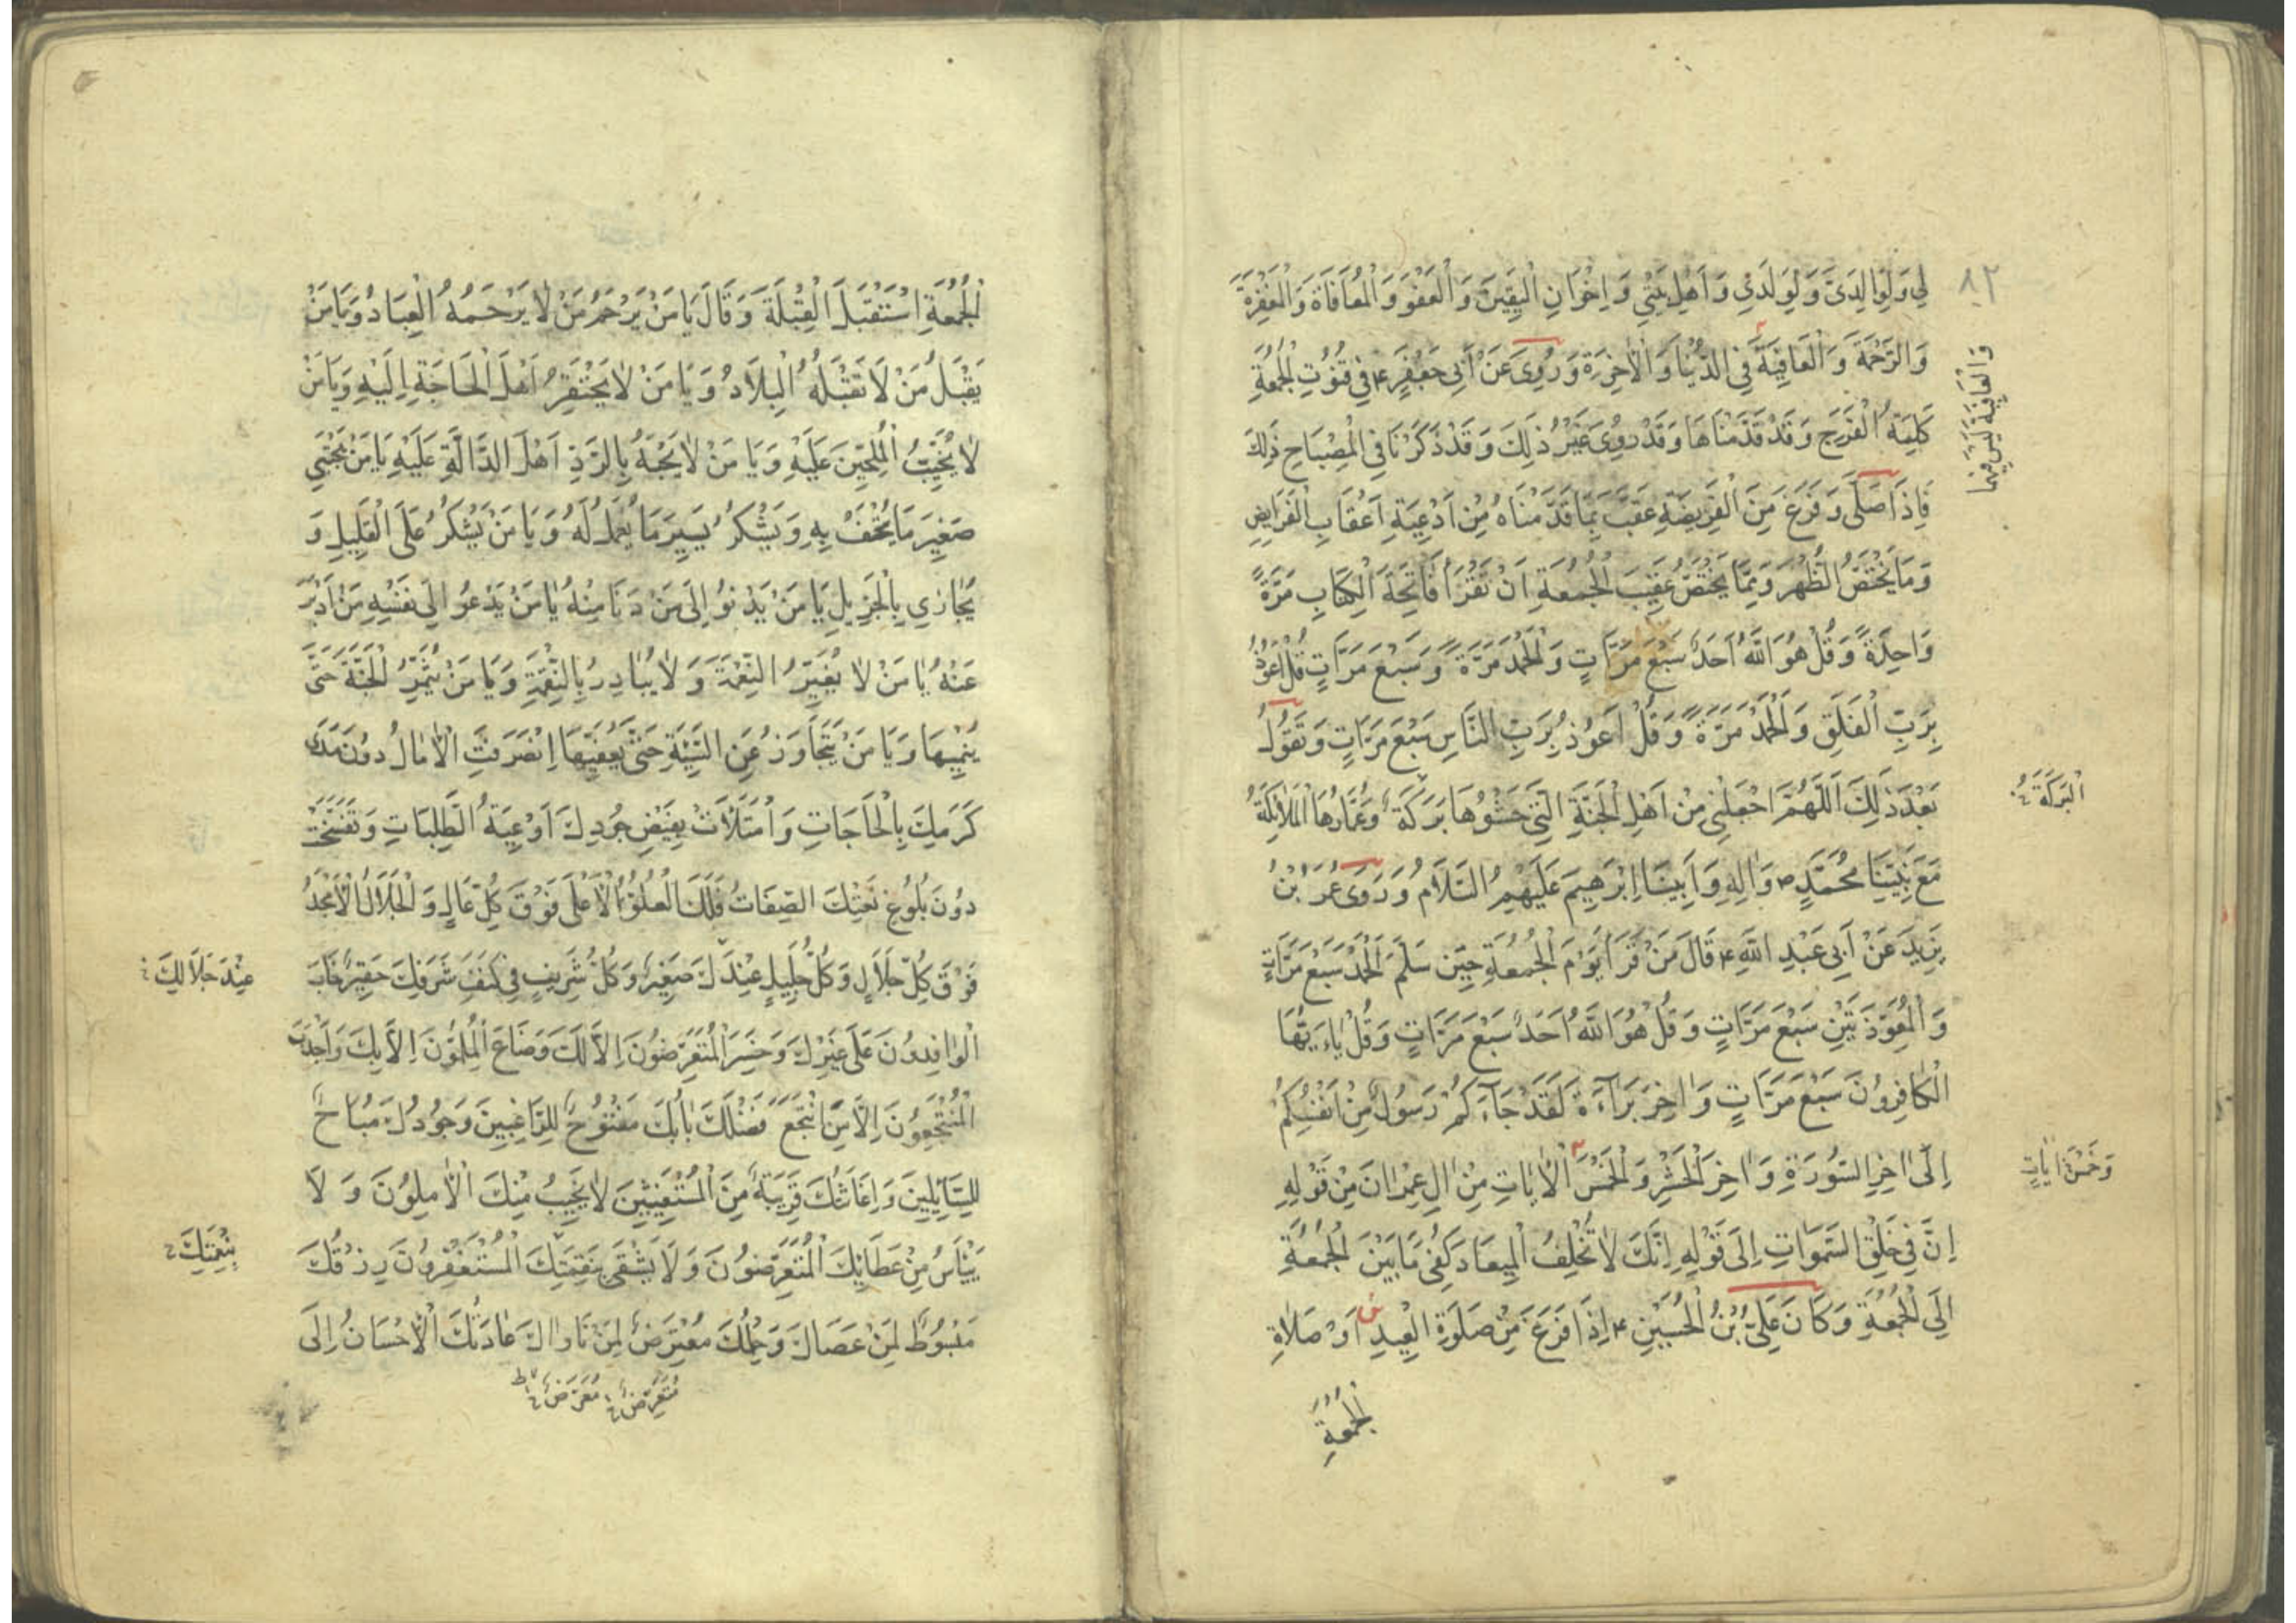 ٨٢
لِي وَلِوَالِدَيَّ وَلِوَلَدَيَّ وَاَهْلِ بَيْتِي وَاِخْوَانِ الْيَقِينَ وَالْعَفْوَ وَالْمُعَافَاةَ وَالْمَغْفِرَةَ
وَالرَّحْمَةَ وَالْعَافِيَةَ فِي الدُّنْيَا وَالْاٰخِرَةِ وَرُوِيَ عَنْ أَبِي جَعْفَرٍ ع فِي قُنُوتِ الْجُمُعَةِ
وَالْعَافِيَةَ لَيْسَ فِيهَا
كَلِمَةُ الْفَرَجِ وَقَدْ قَدَّمْنَاهَا وَقَدْ رُوِيَ غَيْرُ ذٰلِكَ وَقَدْ ذَكَرْنَا فِي الْمِصْبَاحِ ذٰلِكَ
فَاِذَا صَلَّى وَفَرَغَ مِنَ الْفَرِيضَةِ عَقَّبَ بِمَا قَدَّمْنَاهُ مِنْ اَدْعِيَةِ اَعْقَابِ الْفَرَايِضِ
وَمَا يَخْتَصُّ الظُّهْرَ وَمِمَّا يَخْتَصُّ عَقِيبَ الْجُمُعَةِ اَنْ تَقْرَأَ فَاتِحَةَ الْكِتَابِ مَرَّةً
وَاحِدَةً وَقُلْ هُوَ اللّٰهُ اَحَدٌ سَبْعَ مَرَّاتٍ وَالْحَمْدَ مَرَّةً وَسَبْعَ مَرَّاتٍ قُلْ اَعُوذُ
بِرَبِّ الْفَلَقِ وَالْحَمْدَ مَرَّةً وَقُلْ اَعُوذُ بِرَبِّ النَّاسِ سَبْعَ مَرَّاتٍ وَتَقُولُ
بَعْدَ ذٰلِكَ اَللّٰهُمَّ اجْعَلْنِي مِنْ اَهْلِ الْجَنَّةِ الَّتِي حَشْوُهَا بَرَكَةٌ وَعُمَّارُهَا الْمَلَائِكَةُ
الْبَرَكَةُ
مَعَ نَبِيِّنَا مُحَمَّدٍ ص وَاٰلِهِ وَاَبِينَا اِبْرٰهِيمَ عَلَيْهِمُ السَّلَامُ وَرَوَى عُمَرُ ابْنُ
يَزِيدَ عَنْ أَبِي عَبْدِ اللّٰهِ ع قَالَ مَنْ قَرَأَ يَوْمَ الْجُمُعَةِ حِينَ سَلَّمَ الْحَمْدَ سَبْعَ مَرَّاتٍ
وَالْمُعَوِّذَتَيْنِ سَبْعَ مَرَّاتٍ وَقُلْ هُوَ اللّٰهُ اَحَدٌ سَبْعَ مَرَّاتٍ وَقُلْ يٰاءَيُّهَا
الْكَافِرُونَ سَبْعَ مَرَّاتٍ وَاٰخِرَ بَرَآءَةَ لَقَدْ جَآءَكُمْ رَسُولٌ مِنْ اَنْفُسِكُمْ
اِلٰى اٰخِرِ السُّورَةِ وَاٰخِرَ الْحَشْرِ وَالْخَمْسَ الْاٰيَاتِ مِنْ اٰلِ عِمْرَانَ مِنْ قَوْلِهِ
وَخَمْسَ اٰيَاتٍ
اِنَّ فِي خَلْقِ السَّمٰوَاتِ اِلَى قَوْلِهِ اِنَّكَ لَا تُخْلِفُ الْمِيعَادَ كُفِيَ مَا بَيْنَ الْجُمُعَةِ
اِلَى الْجُمُعَةِ وَكَانَ عَلِيُّ بْنُ الْحُسَيْنِ ع اِذَا فَرَغَ مِنْ صَلَوةِ الْعِيدِ اَوْ صَلَاةِ
الْجُمُعَةِ
الْجُمُعَةِ اسْتَقْبَلَ الْقِبْلَةَ وَقَالَ يَا مَنْ يَرْحَمُ مَنْ لَا يَرْحَمُهُ الْعِبَادُ وَيَا مَنْ
يَقْبَلُ مَنْ لَا تَقْبَلُهُ الْبِلَادُ وَيَا مَنْ لَا يَحْتَقِرُ اَهْلَ الْحَاجَةِ اِلَيْهِ وَيَا مَنْ
لَا يُخَيِّبُ الْمُلِحِّينَ عَلَيْهِ وَيَا مَنْ لَا يَجْبَهُ بِالرَّدِّ اَهْلَ الدَّالَّةِ عَلَيْهِ يَا مَنْ يَجْتَبِي
صَغِيرَ مَا يُتْحَفُ بِهِ وَيَشْكُرُ يَسِيرَ مَا يُعْمَلُ لَهُ وَيَا مَنْ يَشْكُرُ عَلَى الْقَلِيلِ وَ
يُجَازِي بِالْجَزِيلِ يَا مَنْ يَدْنُو اِلَى مَنْ دَنَا مِنْهُ يَا مَنْ يَدْعُو اِلَى نَفْسِهِ مَنْ اَدْبَرَ
عَنْهُ يَا مَنْ لَا يُغَيِّرُ النِّعْمَةَ وَلَا يُبَادِرُ بِالنَّقِمَةِ وَيَا مَنْ يُثَمِّرُ الْحَسَنَةَ حَتَّى
يُنْمِيَهَا وَيَا مَنْ يَتَجَاوَزُ عَنِ السَّيِّئَةِ حَتَّى يُعْفِيَهَا اِنْصَرَفَتِ الْاٰمَالُ دُونَ مَدَى
كَرَمِكَ بِالْحَاجَاتِ وَامْتَلَأَتْ بِفَيْضِ جُودِكَ اَوْعِيَةُ الطَّلِبَاتِ وَتَفَسَّخَتْ
دُونَ بُلُوغِ نَعْتِكَ الصِّفَاتُ فَلَكَ الْعُلُوُّ الْاَعْلَى فَوْقَ كُلِّ عَالٍ وَالْجَلَالُ الْاَمْجَدُ
فَوْقَ كُلِّ جَلَالٍ وَكُلُّ جَلِيلٍ عِنْدَكَ صَغِيرٌ وَكُلُّ شَرِيفٍ فِي كَنَفِ شَرَفِكَ حَقِيرٌ خَابَ
عِنْدَ جَلَالِكَ
الْوَافِدُونَ عَلَى غَيْرِكَ وَخَسِرَ الْمُتَعَرِّضُونَ اِلَّا لَكَ وَضَاعَ الْمُلِمُّونَ اِلَّا بِكَ وَاَجْدَبَ
الْمُنْتَجِعُونَ اِلَّا مَنِ انْتَجَعَ فَضْلَكَ بَابُكَ مَفْتُوحٌ لِلرَّاغِبِينَ وَجُودُكَ مُبَاحٌ
لِلسَّائِلِينَ وَاِغَاثَتُكَ قَرِيبَةٌ مِنَ الْمُسْتَغِيثِينَ لَا يَخِيبُ مِنْكَ الْاٰمِلُونَ وَ لَا
يَيْأَسُ مِنْ عَطَائِكَ الْمُتَعَرِّضُونَ وَلَا يَشْقَى بِنَقِمَتِكَ الْمُسْتَغْفِرُونَ رِزْقُكَ
بِنِعْمَتِكَ
مَبْسُوطٌ لِمَنْ عَصَاكَ وَحِلْمُكَ مُعْتَرِضٌ لِمَنْ نَاوَاكَ عَادَتُكَ الْاِحْسَانُ اِلَى
مُتَعَرِّضٌ مُعَرِّضٌ